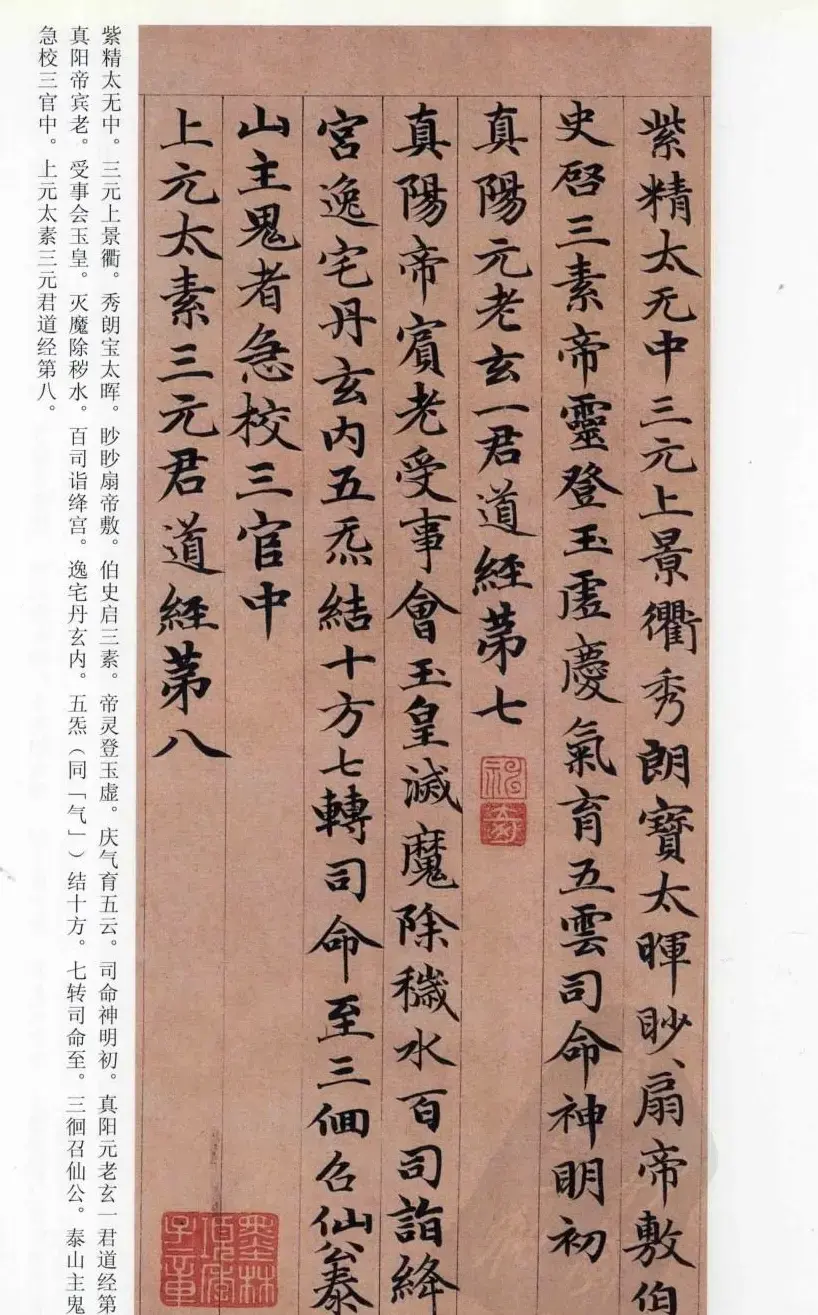 紫精太无中三元上景衢秀朗寶太暉眇、扇帝敷伯
史啓三素帝靈登玉虛慶氣育五雲司命神明初
真陽元老玄一君道經第七
神奇
真陽帝賓老受事會玉皇滅魔除穢水百司詣絳
宮逸宅丹玄内五炁結十方七轉司命至三徊召仙公泰
山主鬼者急校三官中
上元太素三元君道經第八
墨林
項季
子章
紫精太无中。三元上景衢。秀朗宝太晖。眇眇扇帝敷。伯史启三素。帝灵登玉虚。庆气育五云。司命神明初。真阳元老玄一君道经第
真阳帝宾老。受事会玉皇。灭魔除秽水。百司诣绛宫。逸宅丹玄内。五炁（同「气」）结十方。七转司命至。三徊召仙公。泰山主鬼
急校三官中。上元太素三元君道经第八。